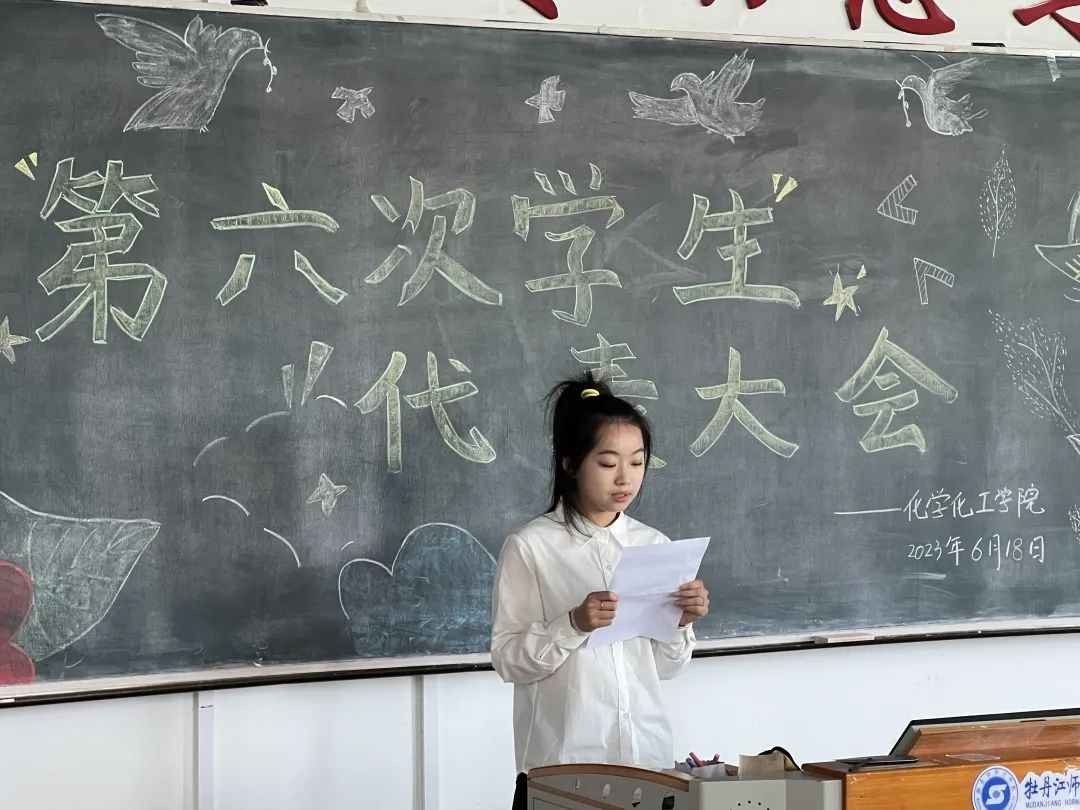 第六次学生
代表大会
——化学化工学院
2023年6月18日
牡丹江师
MUDANJIANG NORM